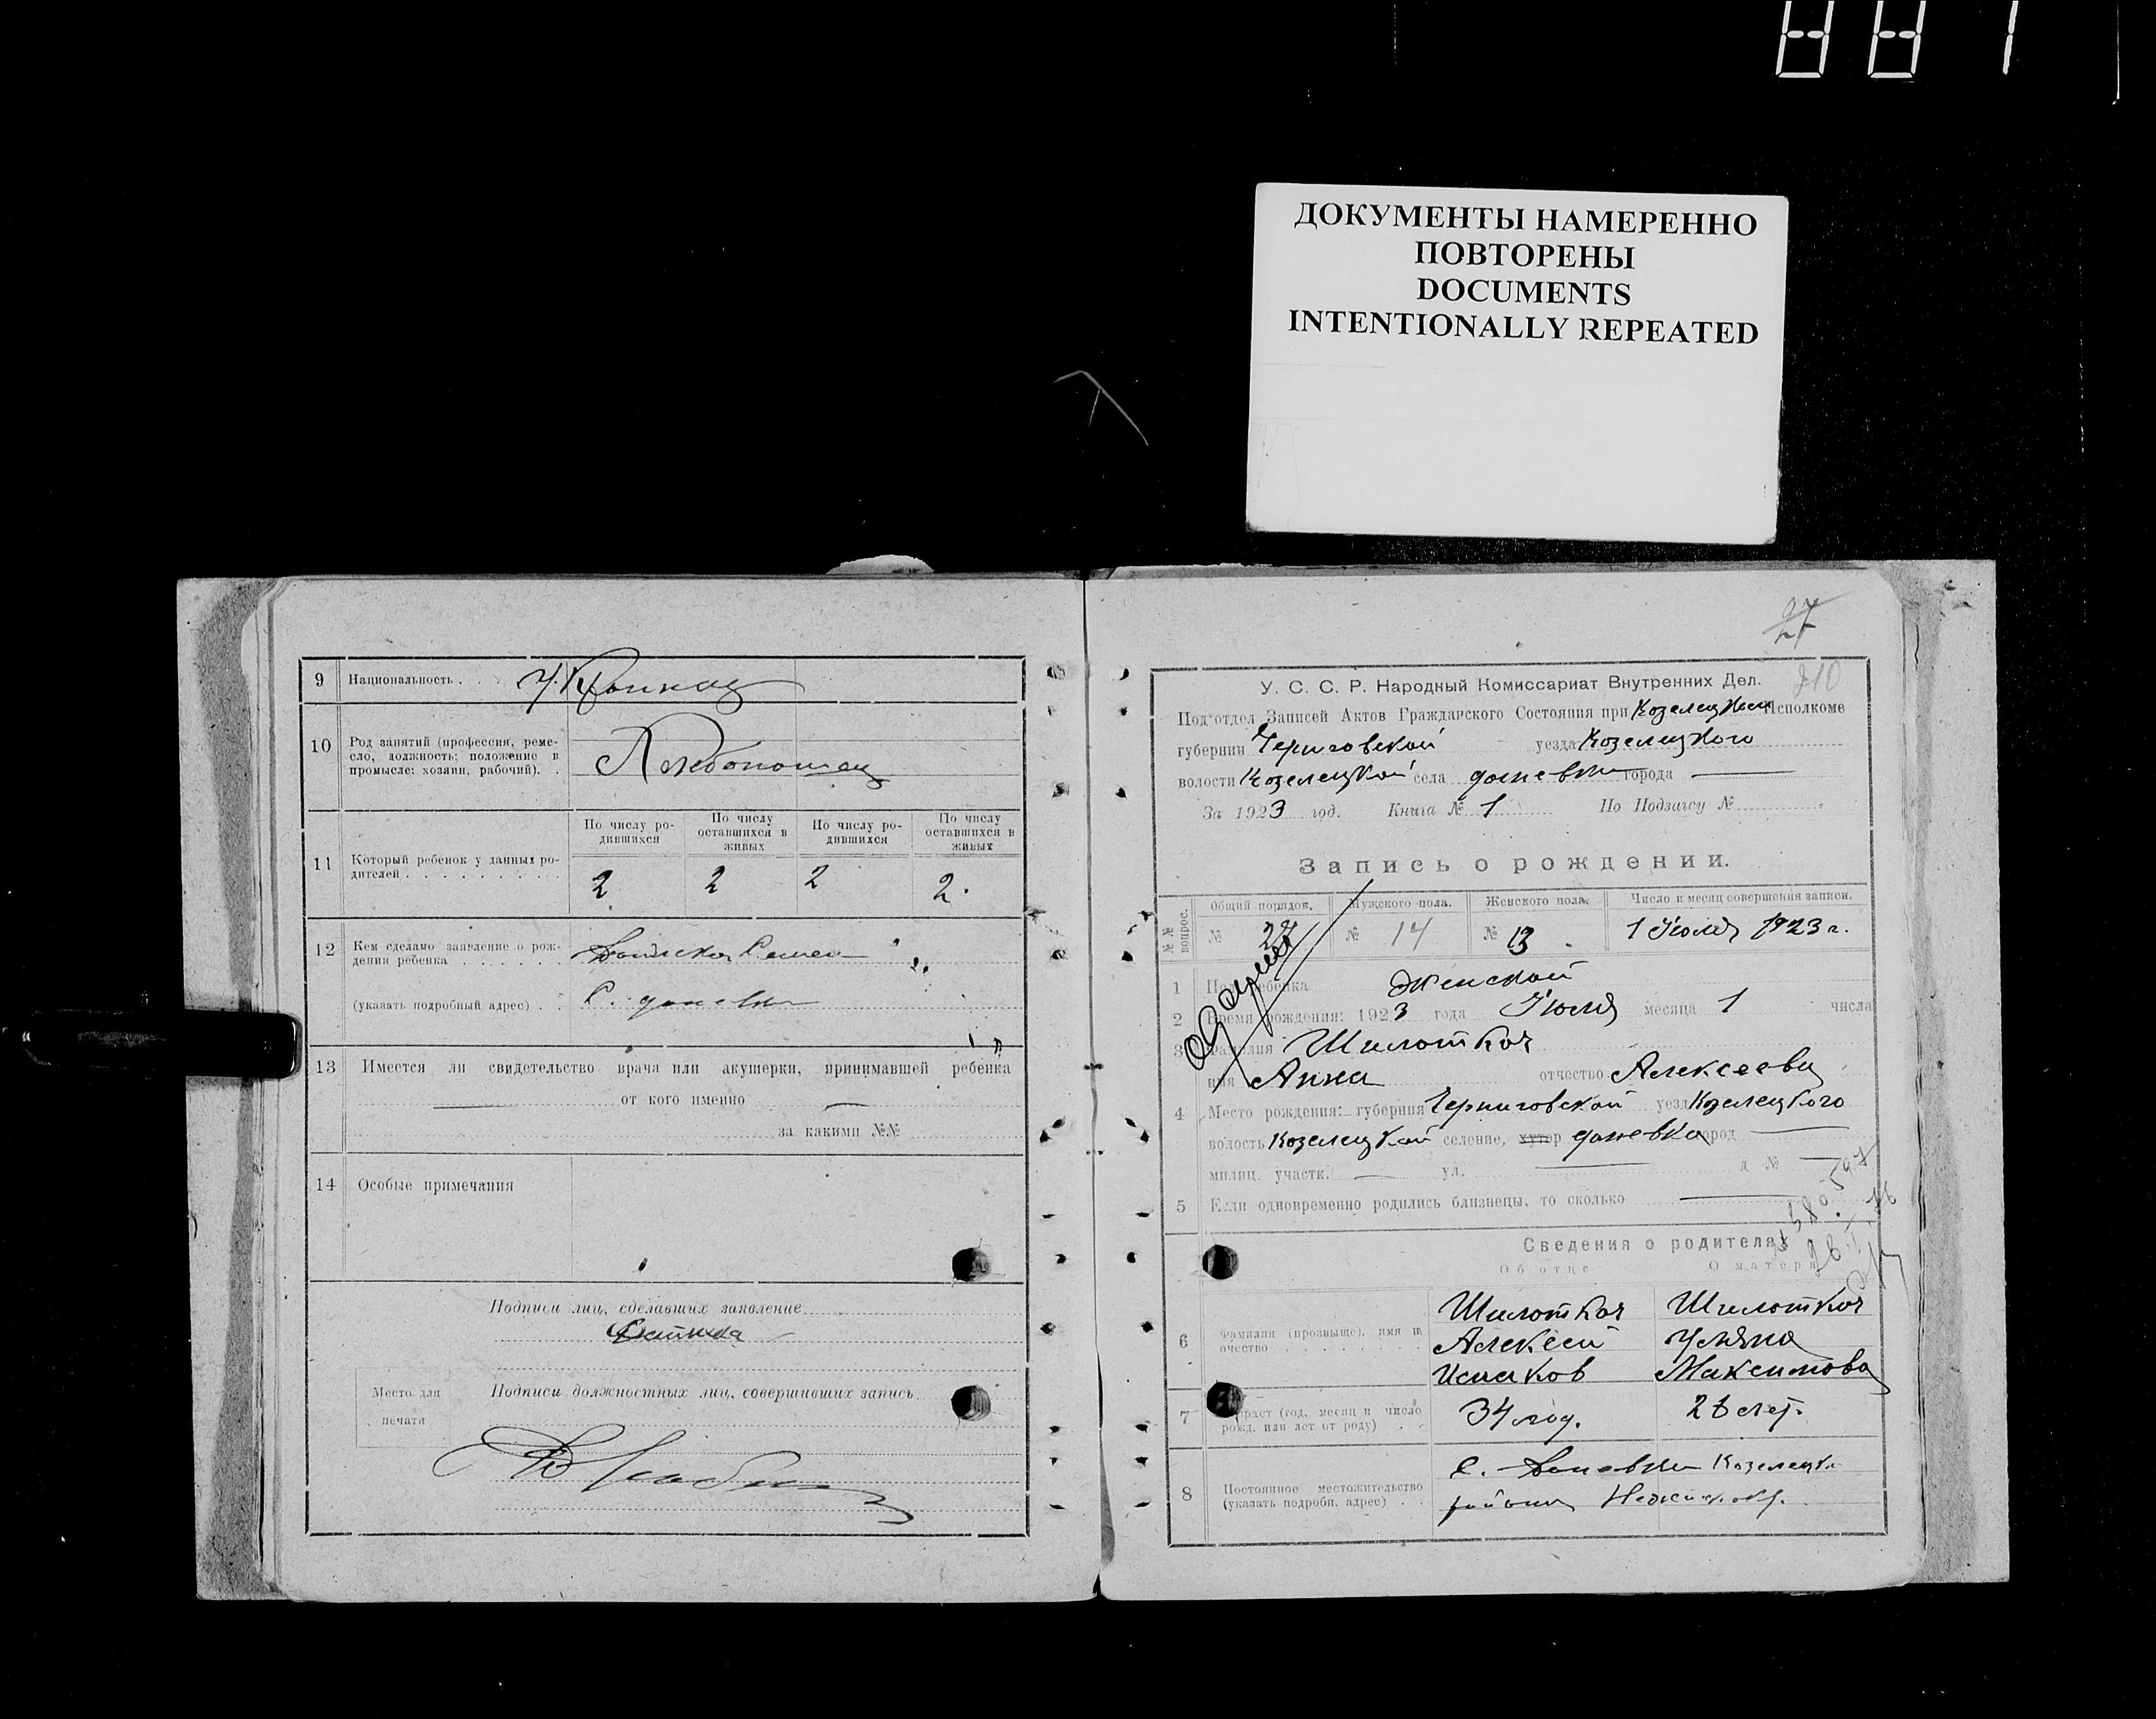 ДОКУМЕНТЫ НАМЕРЕННО
ПОВТОРЕНЫ
DOCUMENTS
INTENTIONALLY REPEATED
9 Национальность
10 Род занятий (профессия, реме-
сло, должность; положение в
промысле: хозяин, рабочий).
По числу ро-
дившихся
По числу
оставшихся в
живых
По числу ро-
дившихся
По числу
оставшихся в
живых
11 Который ребенок у данных ро-
дителей
2 2 2 2.
12 Кем сделано заявление о рож-
дении ребенка
(указать подробный адрес) С. даневки
13 Имеется ли свидетельство врача или акушерки, принимавшей ребенка
от кого именно
за какими №№
14 Особые примечания
Подписи лиц, сделавших заявление
Место для
печати
Подписи должностных лиц, совершивших запись
27
210
У. С. С. Р. Народный Комиссариат Внутренних Дел.
Под'отдел Записей Актов Гражданского Состояния при Козелецком Исполкоме
губернии Черниговской уезда Козелецкого
волости Козелецкой села даневки города
За 1923 год. Книга № 1 По Подзагсу №
Запись о рождении.
№№ вопрос.
Общий порядок. Мужского пола. Женского пола. Число и месяц совершения записи.
№ 27 № 14 № 13 1 Июля 1923 г.
1 Пол ребенка Женской
2 Время рождения: 1923 года Июля месяца 1 числа
3 Фамилия Шилоткач
имя Анна отчество Алексеева
4 Место рождения: губерния Черниговской уезд Козелецкого
волость Козелецкой селение, хутор даневка город
милиц. участк. ул. д №
5 Если одновременно родились близнецы, то сколько
Сведения о родителях
Об отце О матери
6 Фамилия (прозвище), имя и
очество
Шилоткач Шилоткач
Алексей Ульяна
Исаков Максимова
7 Возраст (год, месяц и число
рожд. или лет от роду)
34 год. 26 лет.
8 Постоянное местожительство
(указать подробн. адрес)
с. Даневки Козелецк.
района Нежин. окр.